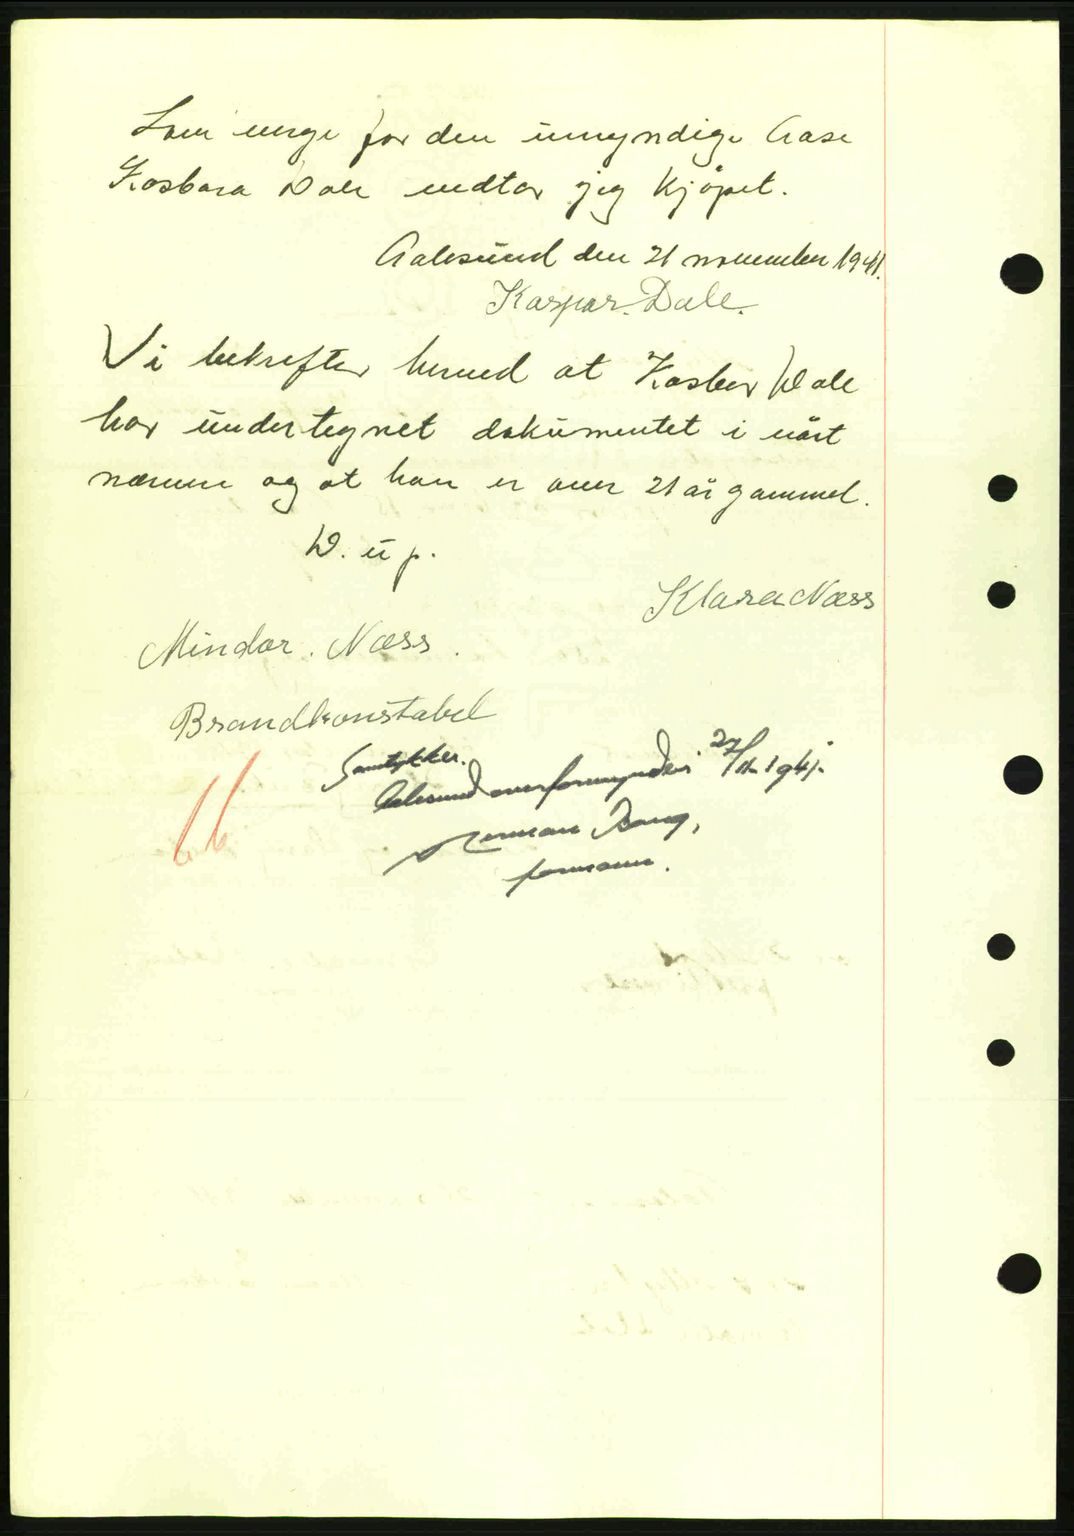 Som verge for den umyndige Aase
Kasbara Dale vedtar jeg kjøpet.
Aalesund den 21 november 1941.
Kaspar. Dale.
Vi bekrefter herved at Kasber Dale
har undertegnet dokumentet i vårt
nærvær og at han er over 21 år gammel.
D. u p.
Klara Næss
Mindor. Næss.
Brandkonstabel
Samtykker.
Aalesund overformynderi 27/11-1941.
Herman Bang,
formann.
66